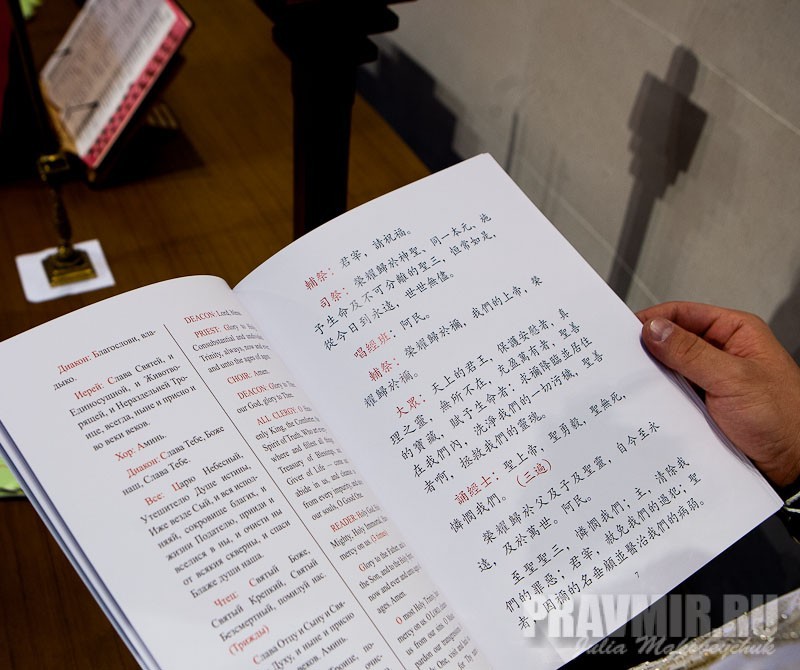 Диакон: Благослови, вла-
дыко.
Иерей: Слава Святей, и
Единосущной, и Животво-
рящей, и Нераздельней Тро-
ице, всегда, ныне и присно и
во веки веков.
Хор: Аминь.
Диакон: Слава Тебе, Боже
наш, Слава Тебе.
Все: Царю Небесный,
Утешителю Душе истины,
Иже везде Сый, и вся исполн-
няяй, сокровище благих, и
жизни Подателю, прииди и
вселися в ны, и очисти ны
от всякия скверны, и спаси
Блаже души наша.
Чтец: Святый Боже,
Святый Крепкий, Святый
Безсмертный, помилуй нас.
(Трижды)
Слава Отцу и Сыну и Свя-
Духу, и ныне и присно
веков. Аминь.
DEACON: Lord,
PRIEST: Glory to
Consubstantial and
Trinity, always, now and
and unto the ages of ages.
CHOIR: Amen.
DEACON: Glory to
our God, glory to Thee.
ALL CLERGY: O
enly King, the Comforter,
Spirit of Truth, Who art
where and fillest all
Treasury of Blessings,
Giver of Life — come
abide in us, and cleanse
from every impurity, and
our souls, O Good One.
READER: Holy God,
Mighty, Holy Immortal,
mercy on us. (3 times)
Glory to the Father, and
the Son, and to the Holy
now and ever and unto
ages. Amen.
O most Holy Trinity,
mercy on us. O Lord,
our sins. O
pardon our transgressions.
One, visit and
輔祭：君宰，請祝福。
司祭：榮耀歸於神聖、同一本元、施
子生命及不可分離的聖三，恒常如是，
從今日到永遠，世世無儘。
唱經班：阿民。
輔祭：榮耀歸於禰，我們的上帝，榮
耀歸於禰。
大眾：天上的君王，保護安慰者，真
理之靈，無所不在，充盈萬有者，聖善
的寶藏，賦予生命者：求禰降臨並居住
在我們內，洗淨我們的一切污穢，聖善
者啊，拯救我們的靈魂。
誦經士：聖上帝，聖勇毅，聖無死，
憐憫我們。(三遍)
榮耀歸於父及子及聖靈，自今至永
遠，及於萬世。阿民。
至聖聖三，憐憫我們；主，清除我
們的罪惡；君宰，赦免我們的過犯；聖
者，因禰的名垂顧並醫治我們的病弱。
7
PRAVMIR.RU
Julia Makoveychuk